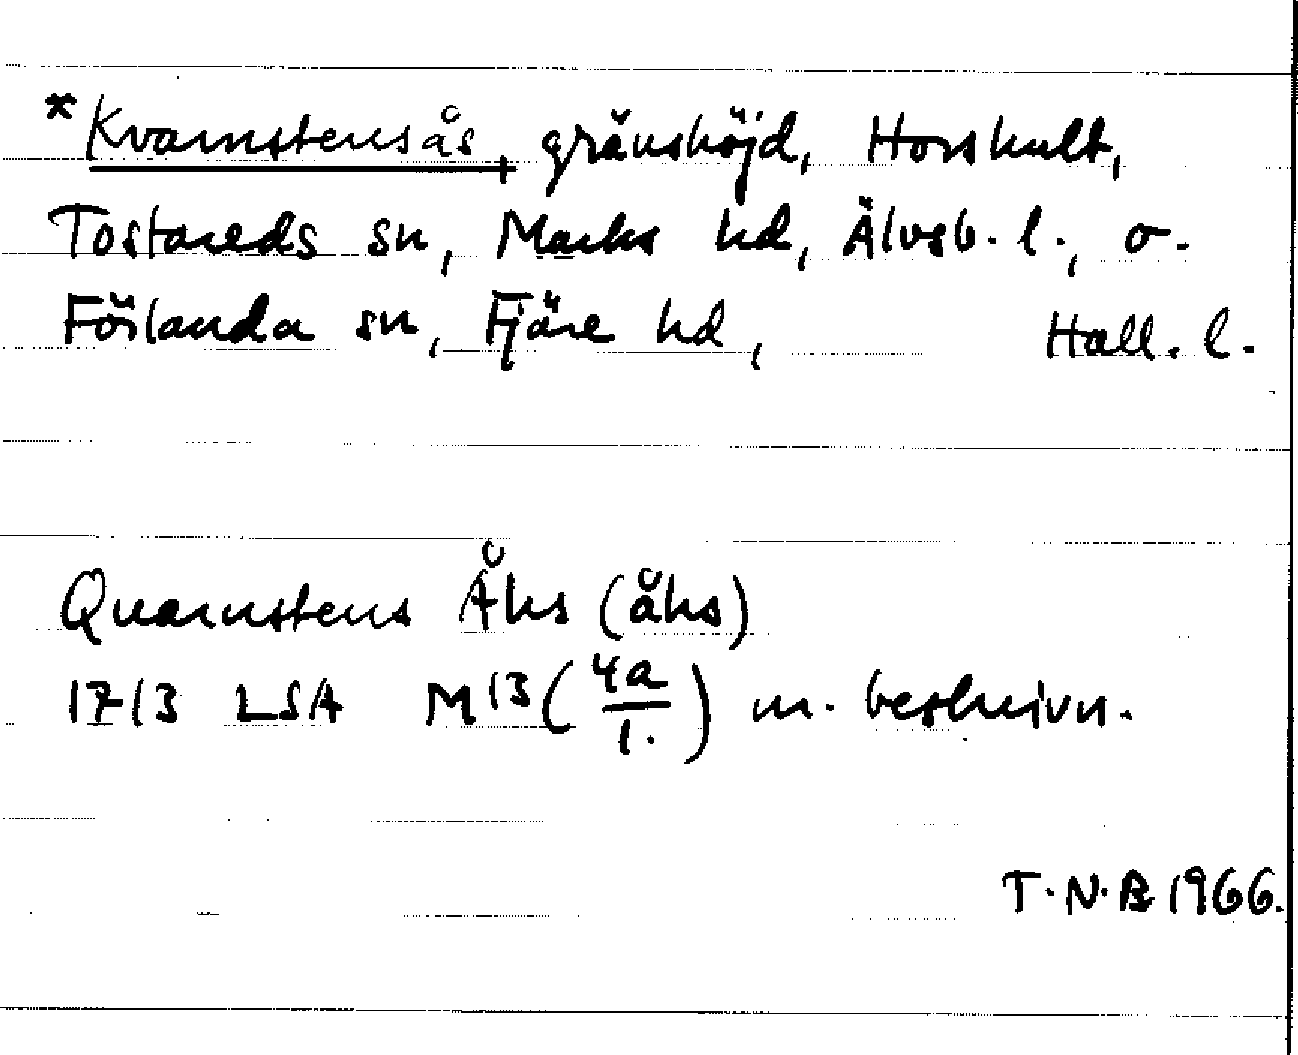 *Kvarnstensås, gränshöjd, Horshult,
Tostareds sn, Marks hd, Älvsb. l., o.
Förlanda sn, Fjäre hd, Hall. l.
Quarnstens Åhs (åhs)
1713 LSA M13(4a/1.) m. beskrivn.
T.N.B 1966.